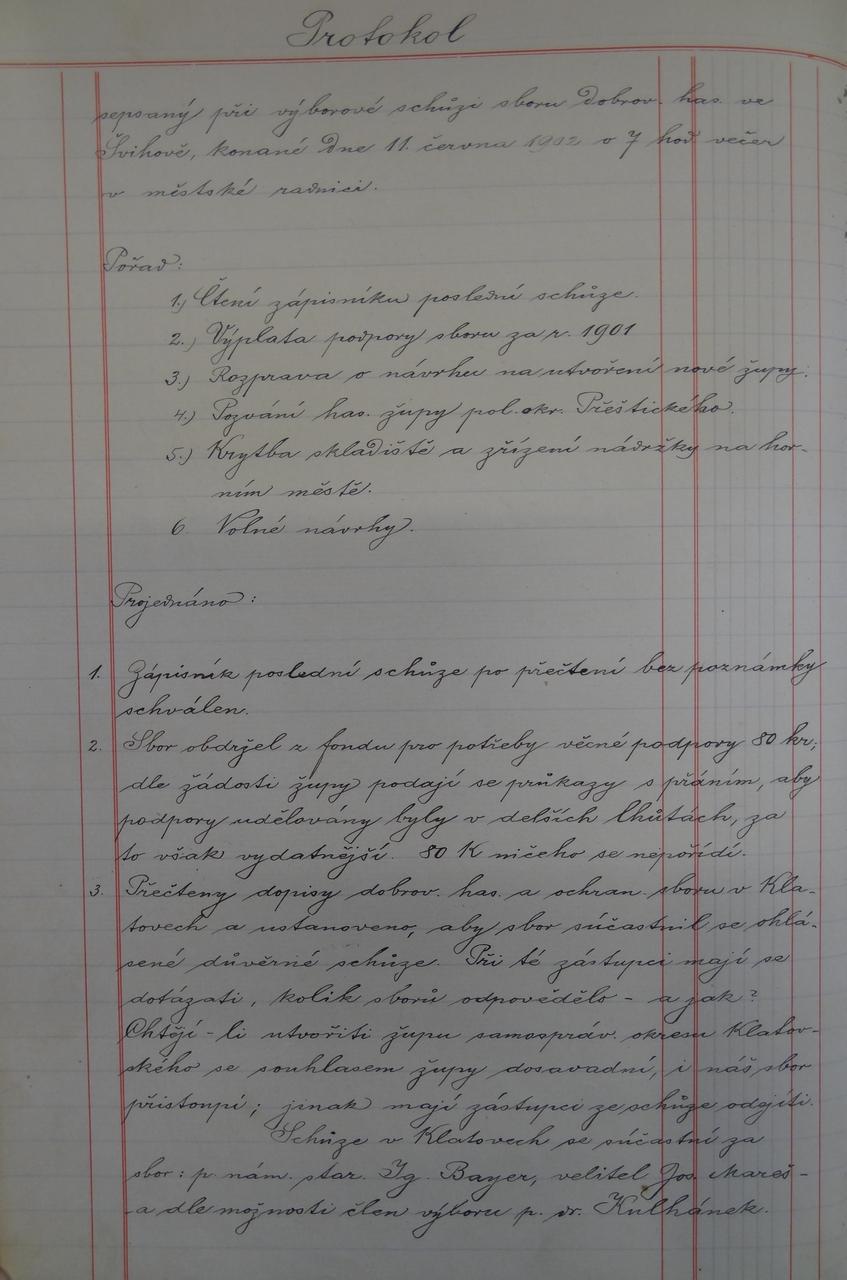 Protokol
sepsaný při výborové schůzi sboru dobrov. has. ve
Švihově, konané dne 11. června 1902 o 7 hod. večer
v městské radnici.
Pořad:
1.) Čtení zápisníku poslední schůze.
2.) Výplata podpory sboru za r. 1901
3.) Rozprava o návrhu na utvoření nové župy.
4.) Pozvání has. župy pol. okr. Přeštického.
5.) Krytba skladiště a zřízení nádržky na hor-
ním městě.
6. Volné návrhy.
Projednáno:
1. Zápisník poslední schůze po přečtení bez poznámky
schválen.
2. Sbor obdržel z fondu pro potřeby věcné podpory 80 kr;
dle žádosti župy podají se průkazy s přáním, aby
podpory udělovány byly v delších lhůtách, za
to však vydatnější. 80 K ničeho se nepořídí.
3. Přečteny dopisy dobrov. has. a ochran. sboru v Kla-
tovech a ustanoveno, aby sbor súčastnil se ohlá-
sené důvěrné schůze. Při té zástupci mají se
dotázati, kolik sborů odpovědělo - a jak?
Chtějí-li utvořiti župu samospráv. okresu Klatov-
ského se souhlasem župy dosavadní, i náš sbor
přistoupí; jinak mají zástupci ze schůze odejíti.
Schůze v Klatovech se súčastní za
sbor: p. nám. star. Ig. Bayer, velitel Jos. Mareš -
- a dle možnosti člen výboru p. dr. Kulhánek.